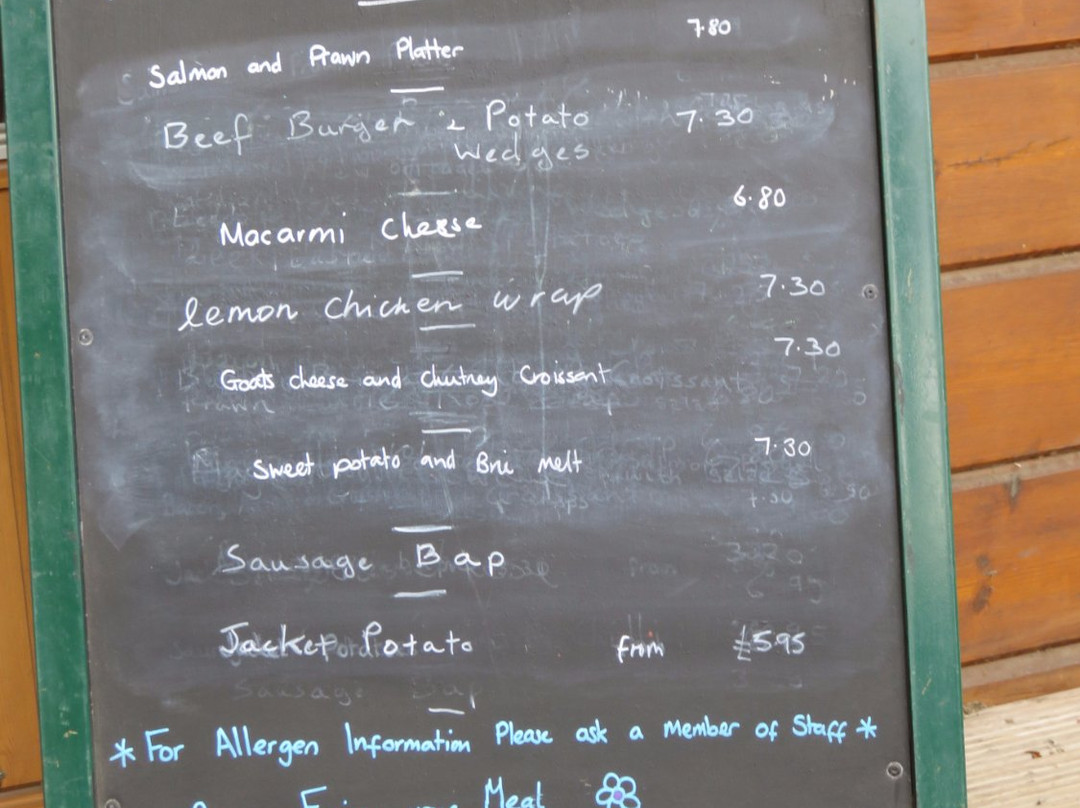 Salmon and Prawn Platter 7.80
Beef Burger & Potato 7.30
Wedges
Macaroni Cheese 6.80
lemon chicken wrap 7.30
Goats cheese and chutney Croissant 7.30
Sweet potato and Brie melt 7.30
Sausage Bap
Jacket Potato from £5.95
* For Allergen Information Please ask a Member of Staff *
Meal